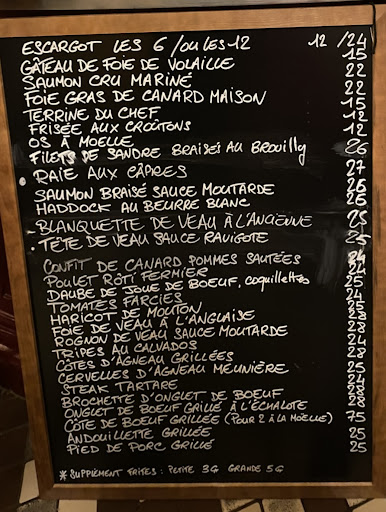 ESCARGOT LES 6 / OU LES 12 12 / 24
GÂTEAU DE FOIE DE VOLAILLE 15
SAUMON CRU MARINÉ 22
FOIE GRAS DE CANARD MAISON 22
TERRINE DU CHEF 15
FRISÉE AUX CROÛTONS 12
OS À MOELLE 12
FILETS DE SANDRE BRAISÉS AU BROUILLY 26
RAIE AUX CÂPRES 27
SAUMON BRAISÉ SAUCE MOUTARDE 26
HADDOCK AU BEURRE BLANC 26
BLANQUETTE DE VEAU À L'ANCIENNE 25
TÊTE DE VEAU SAUCE RAVIGOTE 25
CONFIT DE CANARD POMMES SAUTÉES 24
POULET RÔTI FERMIER 24
DAUBE DE JOUE DE BOEUF, coquillettes 25
TOMATES FARCIES 24
HARICOT DE MOUTON 25
FOIE DE VEAU À L'ANGLAISE 28
ROGNON DE VEAU SAUCE MOUTARDE 28
TRIPES AU CALVADOS 24
CÔTES D'AGNEAU GRILLÉES 28
CERVELLES D'AGNEAU MEUNIÈRE 25
STEAK TARTARE 24
BROCHETTE D'ONGLET DE BOEUF 28
ONGLET DE BOEUF GRILLÉ À L'ÉCHALOTE 28
CÔTE DE BOEUF GRILLÉE (POUR 2 À LA MOËLLE) 75
ANDOUILLETTE GRILLÉE 25
PIED DE PORC GRILLÉ 25
* SUPPLÉMENT FRITES : PETITE 3€ GRANDE 5€